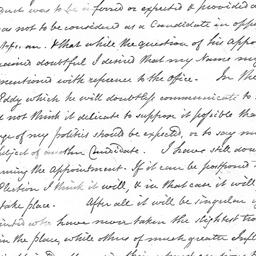 was to be offered or expected & provided a
as not to be considered as a Candidate in oppo
& that while the question of his appo
doubtful I desired that my Name mig
mentioned with reference to the office. In the
Eddy which he will doubtless communicate to
not think it delicate to suppose it possible tha
of my politics should be expected, or to say m
subject of another Candidate. I have still dou
ming the Appointment. If it can be postponed
Election I think it will, & in that case it will
take place. After all it will be singular if
who have never taken the slightest tro
in the place, while others of much greater Infl